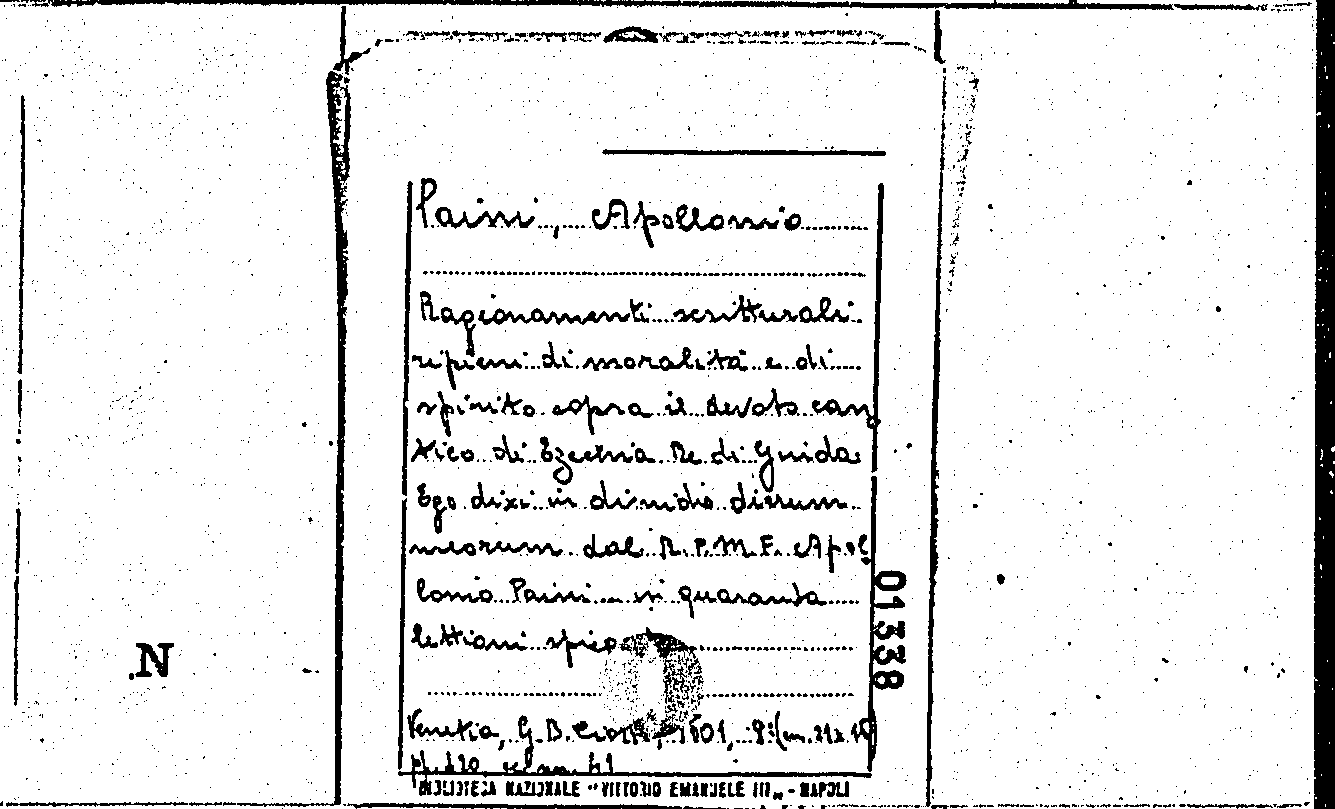 Paini, Apollonio
Ragionamenti scritturali
ripieni di moralità e di
spirito sopra il devoto can
tico di Ezechia Re di Giuda
Ego dixi in dimidio dierum
meorum dal R.P.M.F. Apol
lonio Paini... in quaranta
lettioni
Venetia, G. B. 1601, 8º (cm. 21x
01338
N
BIBLIOTECA NAZIONALE "VITTORIO EMANUELE III" - NAPOLI